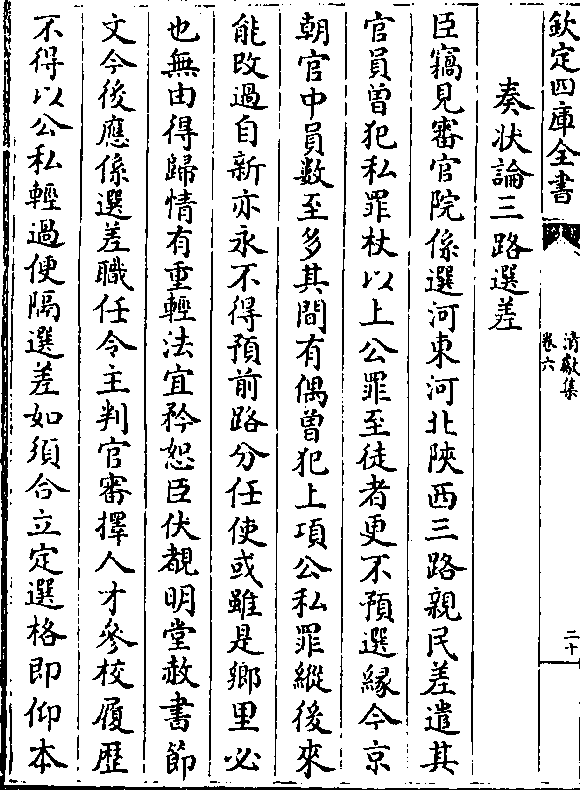 欽定四庫全書
清獻集
卷六
二十
奏狀論三路選差
臣竊見審官院係選河東河北陝西三路親民差遣其
官員曾犯私罪杖以上公罪至徒者更不預選緣今京
朝官中員數至多其間有偶曾犯上項公私罪縱後來
能改過自新亦永不得預前路分任使或雖是鄉里必
也無由得歸情有重輕法宜矜恕臣伏覩明堂赦書節
文今後應係選差職任令主判官審擇人才參校履歴
不得以公私輕過便隔選差如須合立定選格即仰本